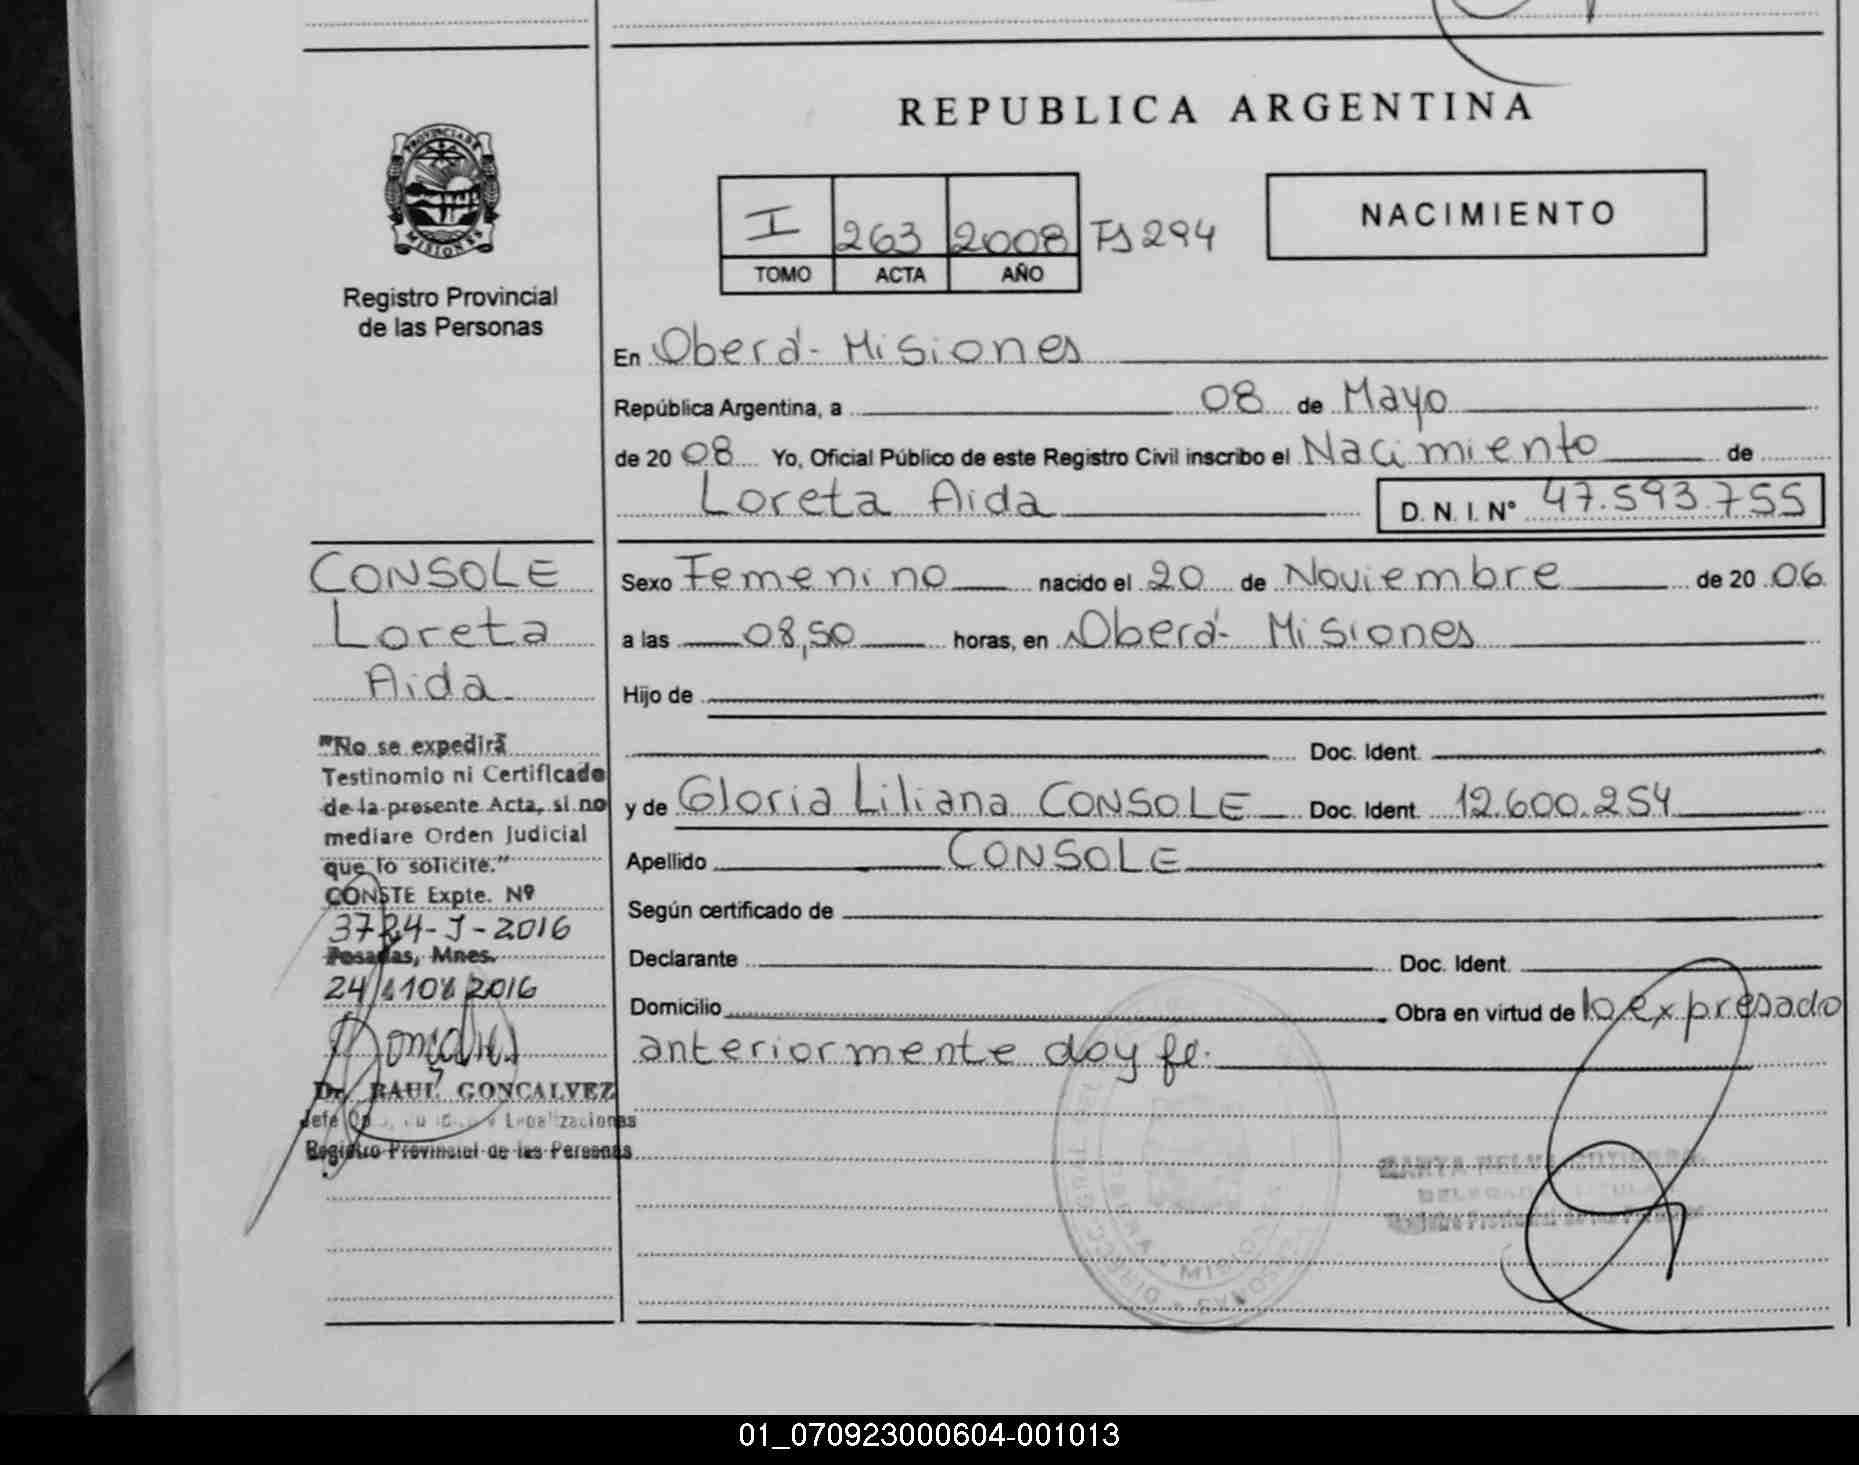 REPUBLICA ARGENTINA
PROVINCIA DE
MISIONES
Registro Provincial
de las Personas
I 263 2008 Fs 294
TOMO ACTA AÑO
NACIMIENTO
En Oberá - Misiones
República Argentina, a 08 de Mayo
de 20 08 Yo, Oficial Público de este Registro Civil inscribo el Nacimiento de
Loreta Aida D. N. I. N° 47.593.755
CONSOLE
Loreta
Aida
Sexo Femenino nacido el 20 de Noviembre de 20 06
a las 08,50 horas, en Oberá - Misiones
Hijo de
Doc. Ident.
y de Gloria Liliana CONSOLE Doc. Ident. 12.600.254
Apellido CONSOLE
Según certificado de
Declarante Doc. Ident.
Domicilio Obra en virtud de lo expresado
anteriormente doy fe.
"No se expedirá
Testinomio ni Certificado
de la presente Acta, si no
mediare Orden Judicial
que lo solicite."
CONSTE Expte. Nº
3724-J-2016
Posadas, Mnes.
24 2016
Dr. RAUL GONCALVEZ
Jefe Legalizaciones
Registro Provincial de las Personas
MISIONES
Registro Provincial de las Personas
01_070923000604-001013